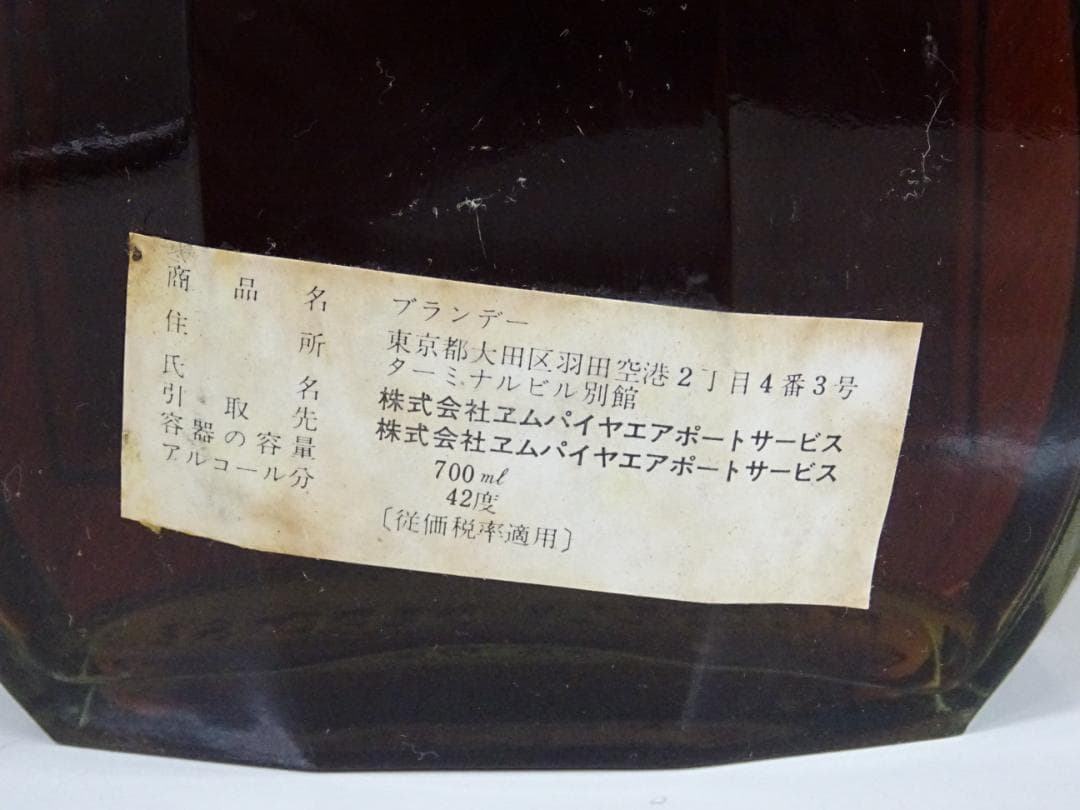 商品名 ブランデー
住所 東京都大田区羽田空港2丁目4番3号
ターミナルビル別館
氏名 株式会社ヱムパイヤエアポートサービス
引取先 株式会社ヱムパイヤエアポートサービス
容器の容量 700ml
アルコール分 42度
〔従価税率適用〕